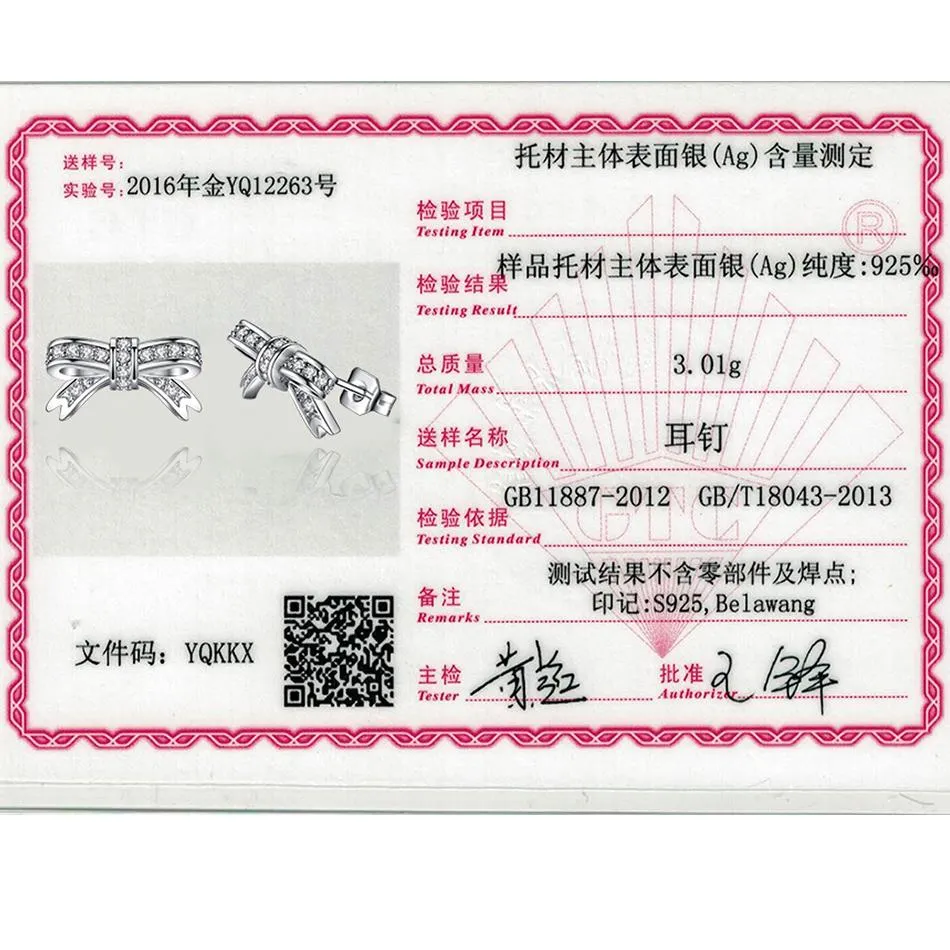 送样号:
实验号:2016年金YQ12263号
托材主体表面银(Ag)含量测定
检验项目
Testing Item
R
样品托材主体表面银(Ag)纯度:925‰
检验结果
Testing Result
总质量
3.01g
Total Mass
送样名称
耳钉
Sample Description
GB11887-2012 GB/T18043-2013
检验依据
Testing Standard
GTC
测试结果不含零部件及焊点;
备注
印记:S925,Belawang
Remarks
文件码: YQKKX
主检
批准
Tester
Authorizer